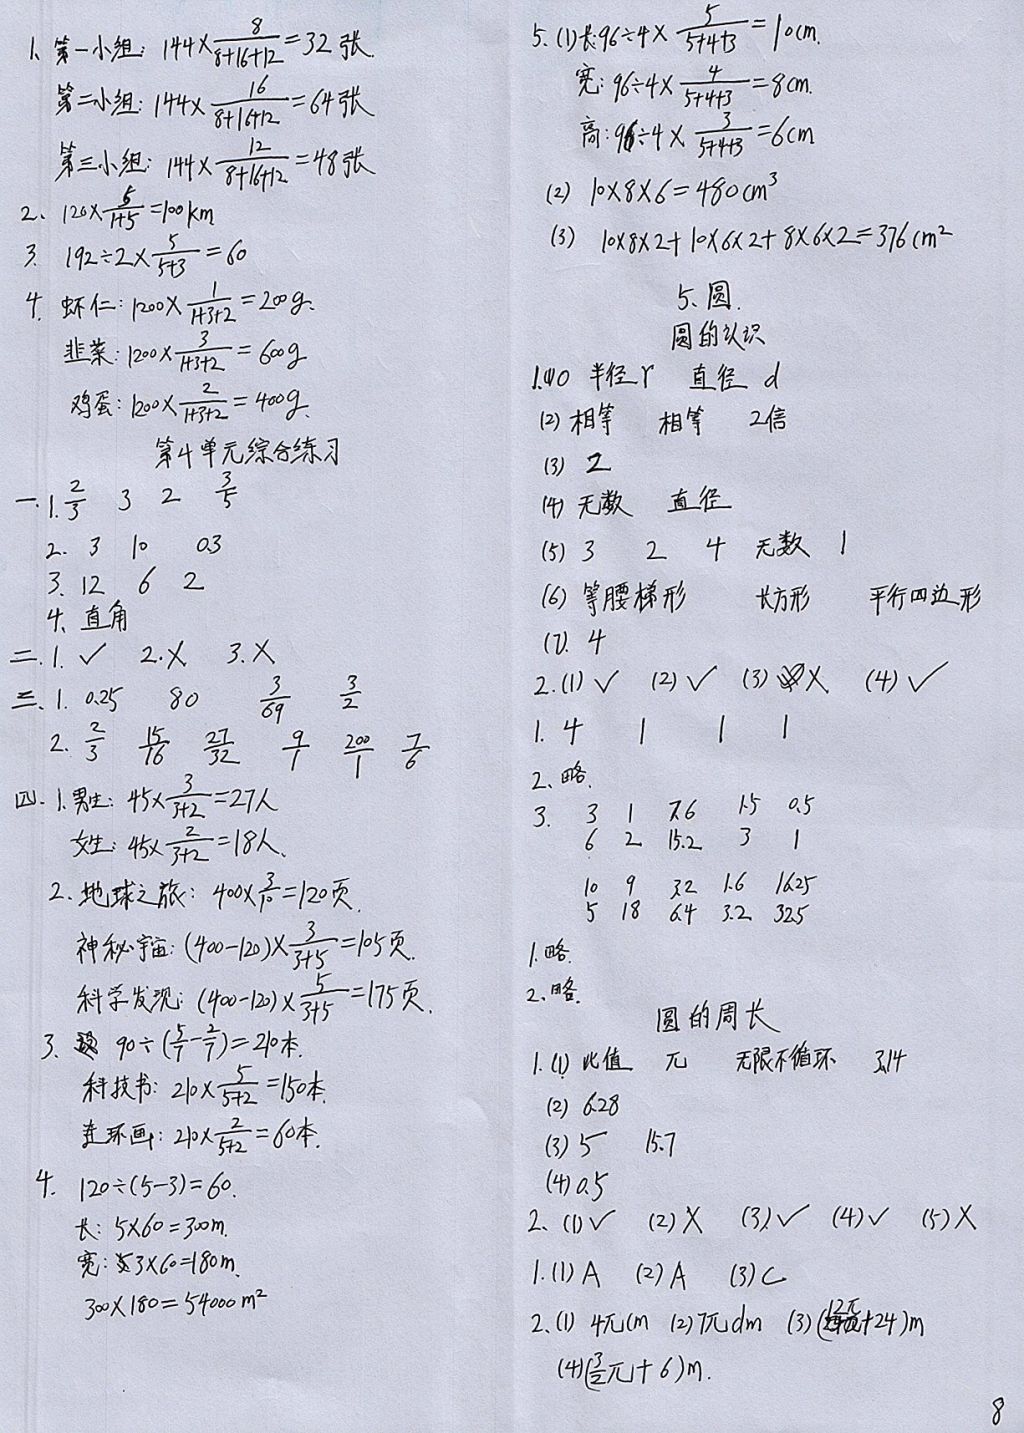 1. 第一小组: 144×8/(8+16+12)=32张
第二小组: 144×16/(8+16+12)=64张
第三小组: 144×12/(8+16+12)=48张
2、120×5/(1+5)=100km
3. 192÷2×5/(5+3)=60
4. 虾仁: 1200×1/(1+3+2)=200g.
韭菜: 1200×3/(1+3+2)=600g
鸡蛋: 1200×2/(1+3+2)=400g.
第4单元综合练习
一.1. 2/3 3 2 3/5
2. 3 10 0.3
3. 12 6 2
4. 直角
二.1. ✓ 2.× 3.×
三、1. 0.25 80 3/69 3/2
2. 2/3 15/16 27/32 9/1 200/1 7/6
四.1.男生: 45×3/(3+2)=27人
女生: 45×2/(3+2)=18人.
2、地球之旅: 400×3/10=120页
神秘宇宙: (400-120)×3/(3+5)=105页.
科学发现: (400-120)×5/(3+5)=175页.
3、90÷(5/7-2/7)=210本.
科技书: 210×5/(5+2)=150本.
连环画: 210×2/(5+2)=60本.
4. 120÷(5-3)=60.
长: 5×60=300m.
宽: 3×60=180m.
300×180=54000m²
5.(1)长:96÷4×5/(5+4+3)=10cm.
宽: 96÷4×4/(5+4+3)=8cm.
高: 96÷4×3/(5+4+3)=6cm
(2) 10×8×6=480cm³
(3) 10×8×2+10×6×2+8×6×2=376cm²
5、圆.
圆的认识
1.(1)O 半径r 直径 d
(2)相等 相等 2倍
(3) 2
(4)无数 直径
(5) 3 2 4 无数 1
(6) 等腰梯形 长方形 平行四边形
(7). 4
2.(1)✓ (2)✓ (3)× (4)✓
1. 4 1 1 1
2.略.
3. 3 1 7.6 1.5 0.5
6 2 15.2 3 1
10 9 3.2 1.6 16.25
5 18 6.4 3.2 32.5
1.略.
2、略.
圆的周长
1.(1)比值 π 无限不循环 3.14
(2) 6.28
(3) 5 15.7
(4) 0.5
2、(1)✓ (2)× (3)✓ (4)✓ (5)×
1.(1)A (2)A (3)C
2.(1) 4πcm (2)7πdm (3)(12π+24)m
(4)(3/2π+6)m.
8